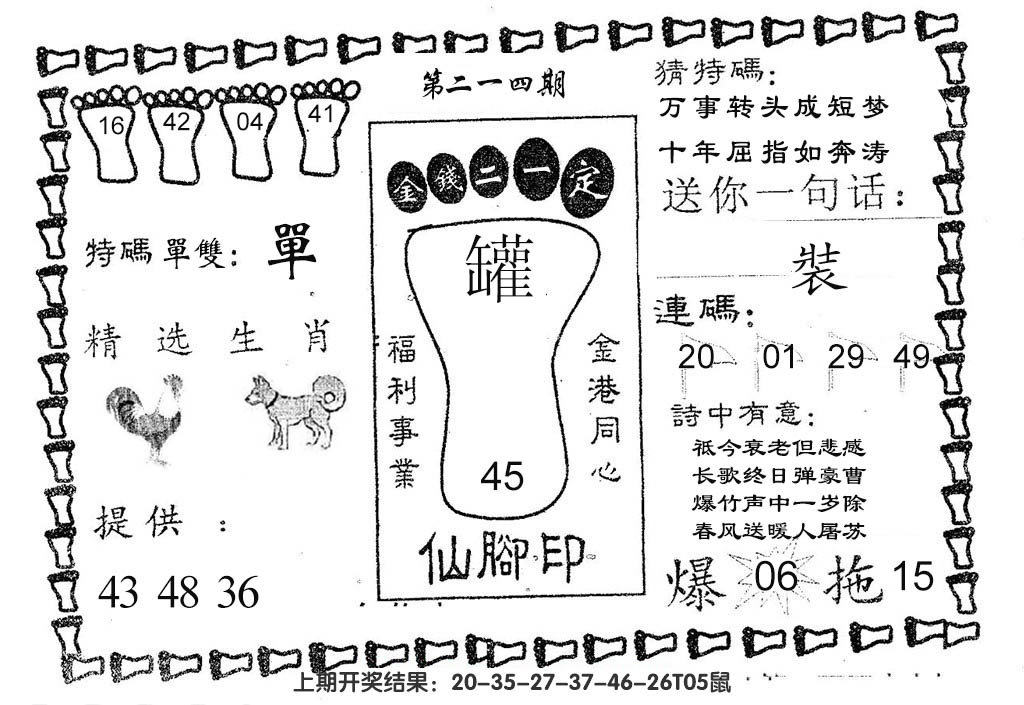 第二一四期
16 42 04 41
特碼單雙: 單
精选生肖
提供 :
43 48 36
金錢二一定
罐
福利事業
金港同心
45
仙腳印
猜特碼:
万事转头成短梦
十年屈指如奔涛
送你一句话:
裝
連碼:
20 01 29 49
詩中有意:
祗今衰老但悲感
长歌终日弹豪曹
爆竹声中一岁除
春风送暖人屠苏
爆 06 拖 15
上期开奖结果：20-35-27-37-46-26T05鼠